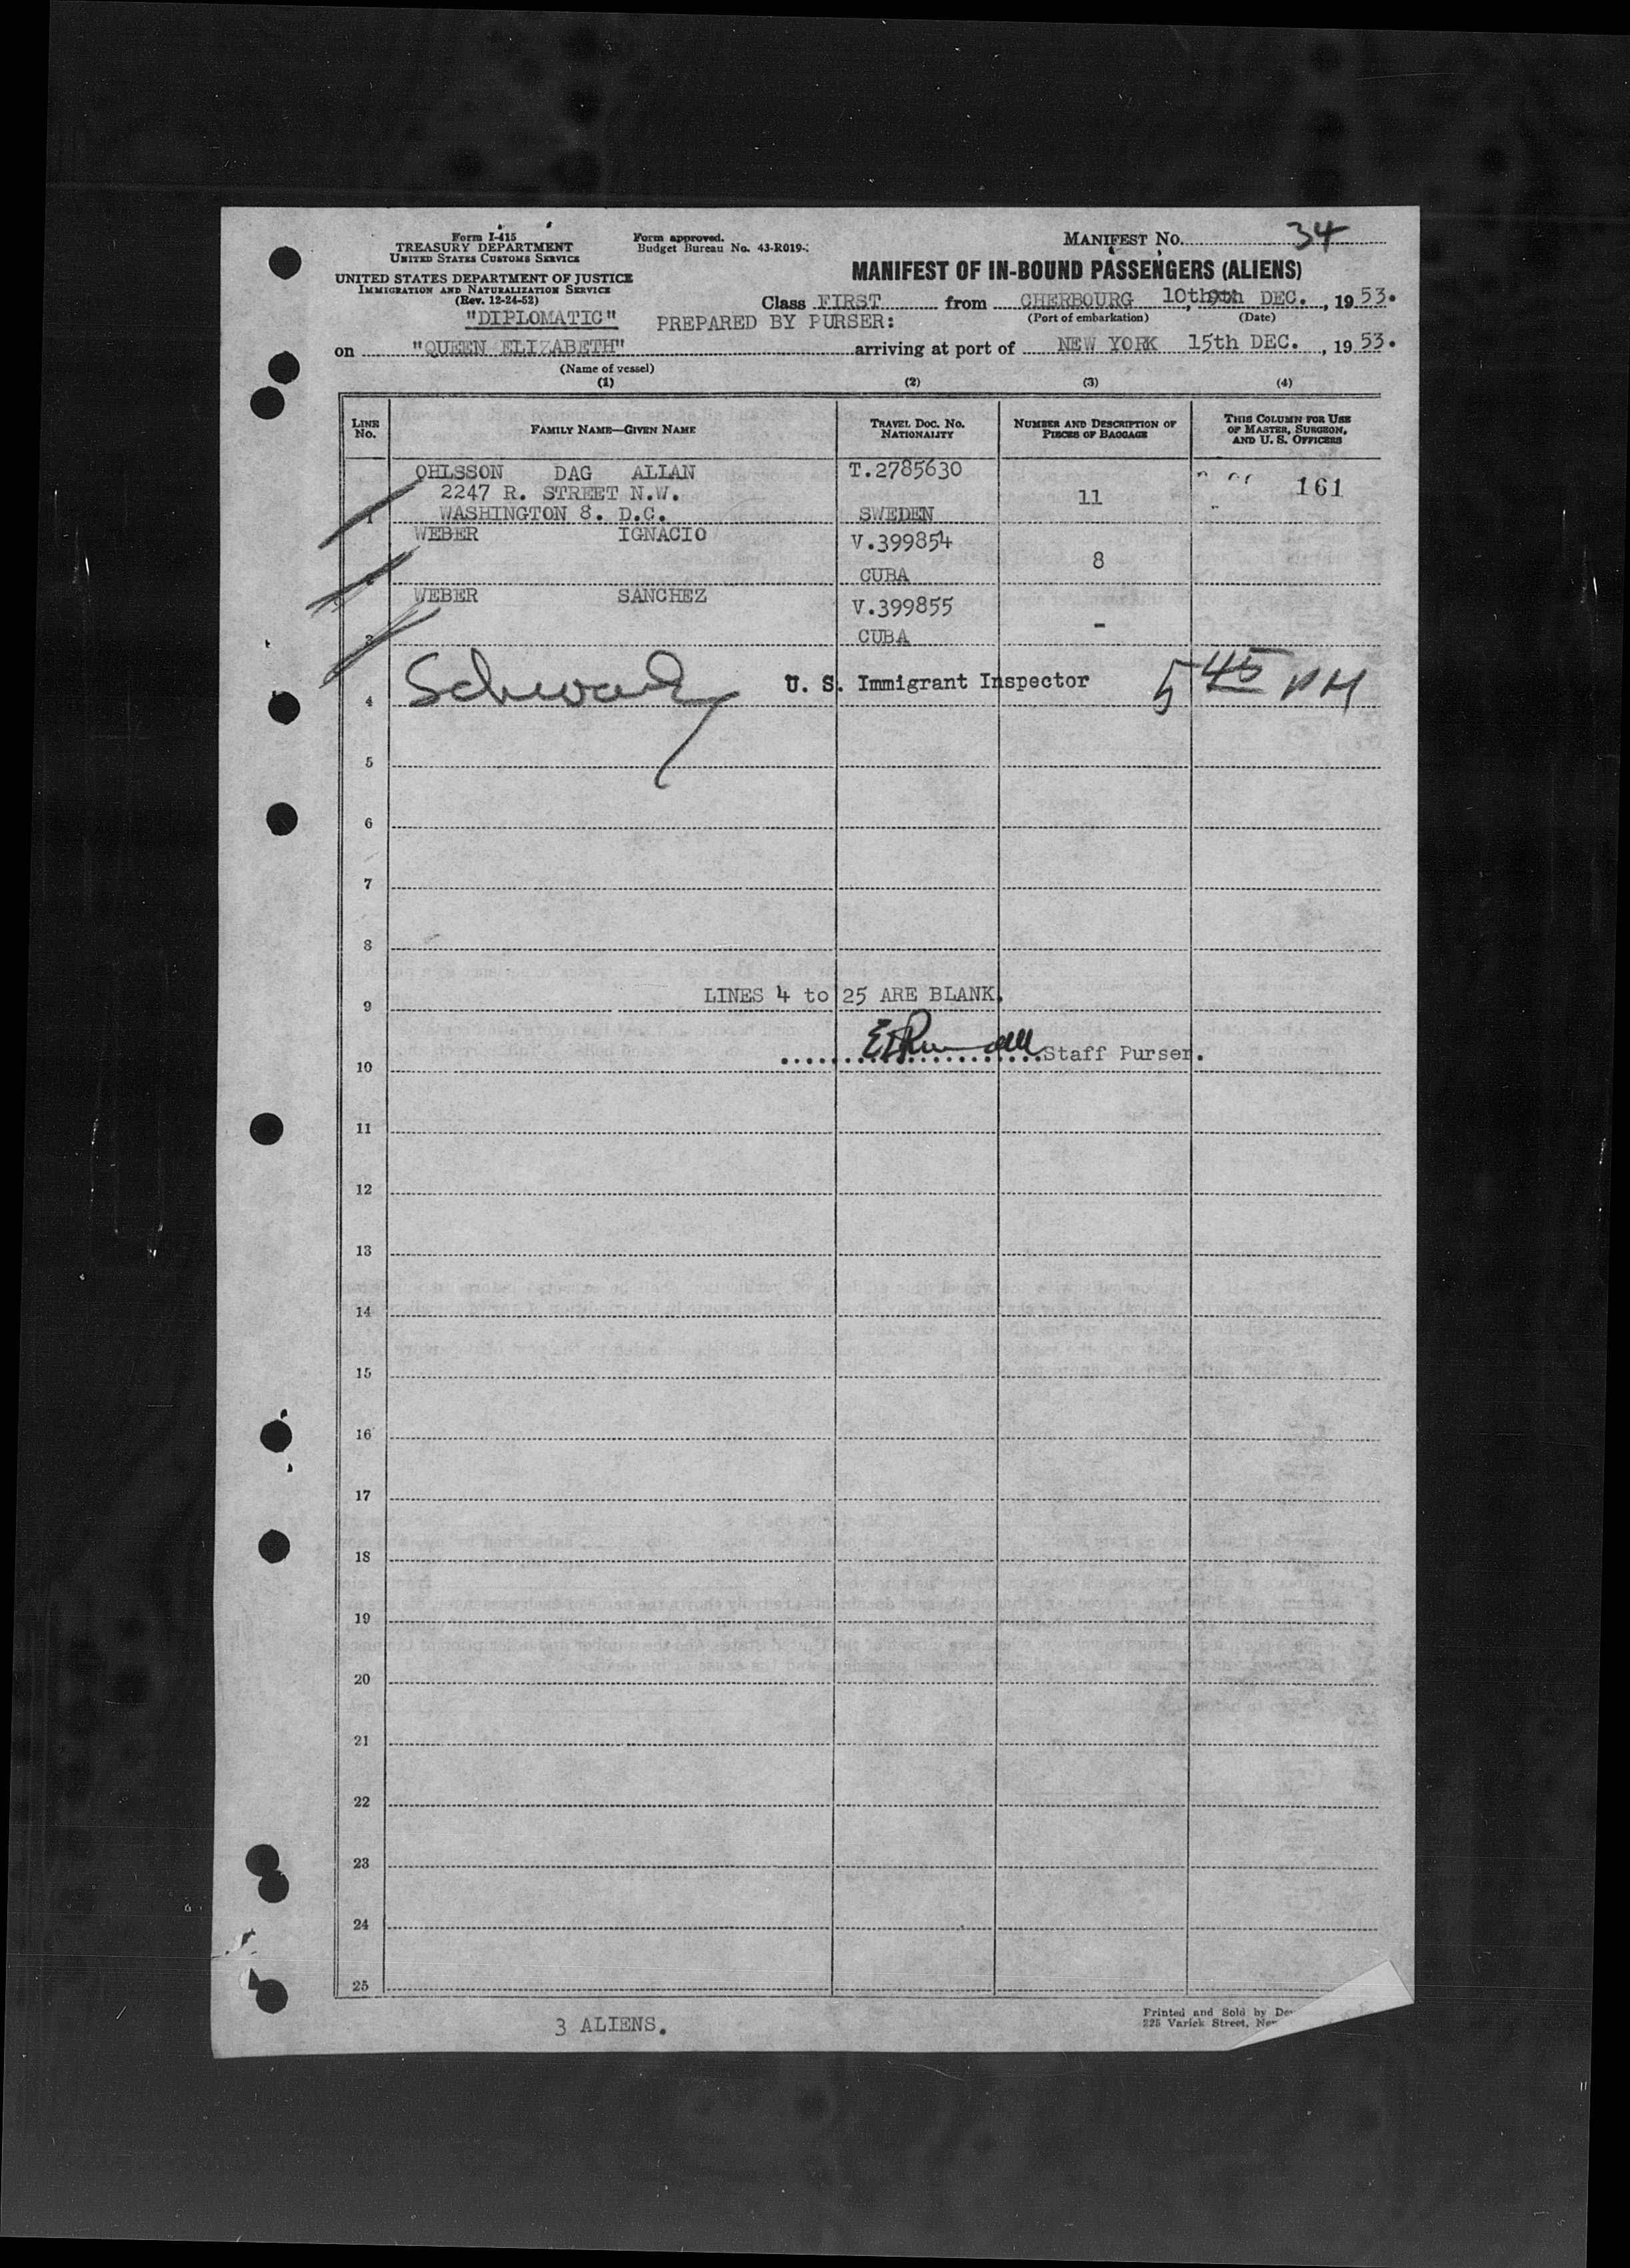 Form I-415
TREASURY DEPARTMENT
UNITED STATES CUSTOMS SERVICE
UNITED STATES DEPARTMENT OF JUSTICE
IMMIGRATION AND NATURALIZATION SERVICE
(Rev. 12-24-52)
"DIPLOMATIC"
Form approved.
Budget Bureau No. 43-R019-
MANIFEST No. 34
MANIFEST OF IN-BOUND PASSENGERS (ALIENS)
Class FIRST from CHERBOURG 10th DEC., 1953.
(Port of embarkation) (Date)
PREPARED BY PURSER:
on "QUEEN ELIZABETH" arriving at port of NEW YORK 15th DEC., 1953.
(Name of vessel)
(1) (2) (3) (4)
LINE No. FAMILY NAME—GIVEN NAME TRAVEL DOC. NO. NATIONALITY NUMBER AND DESCRIPTION OF PIECES OF BAGGAGE THIS COLUMN FOR USE OF MASTER, SURGEON, AND U. S. OFFICERS
OHLSSON DAG ALLAN T.2785630
2247 R. STREET N.W. 11 161
1 WASHINGTON 8. D.C. SWEDEN
WEBER IGNACIO V.399854
8
2 CUBA
WEBER SANCHEZ V.399855
-
3 CUBA
4 U. S. Immigrant Inspector 5 45 PM
5
6
7
8
LINES 4 to 25 ARE BLANK.
9
Staff Purser.
10
11
12
13
14
15
16
17
18
19
20
21
22
23
24
25
3 ALIENS.
Printed and Sold by
225 Varick Street,